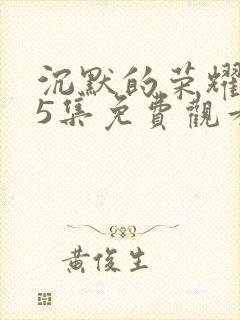 沉默的荣耀
5集免費觀
黃俊生